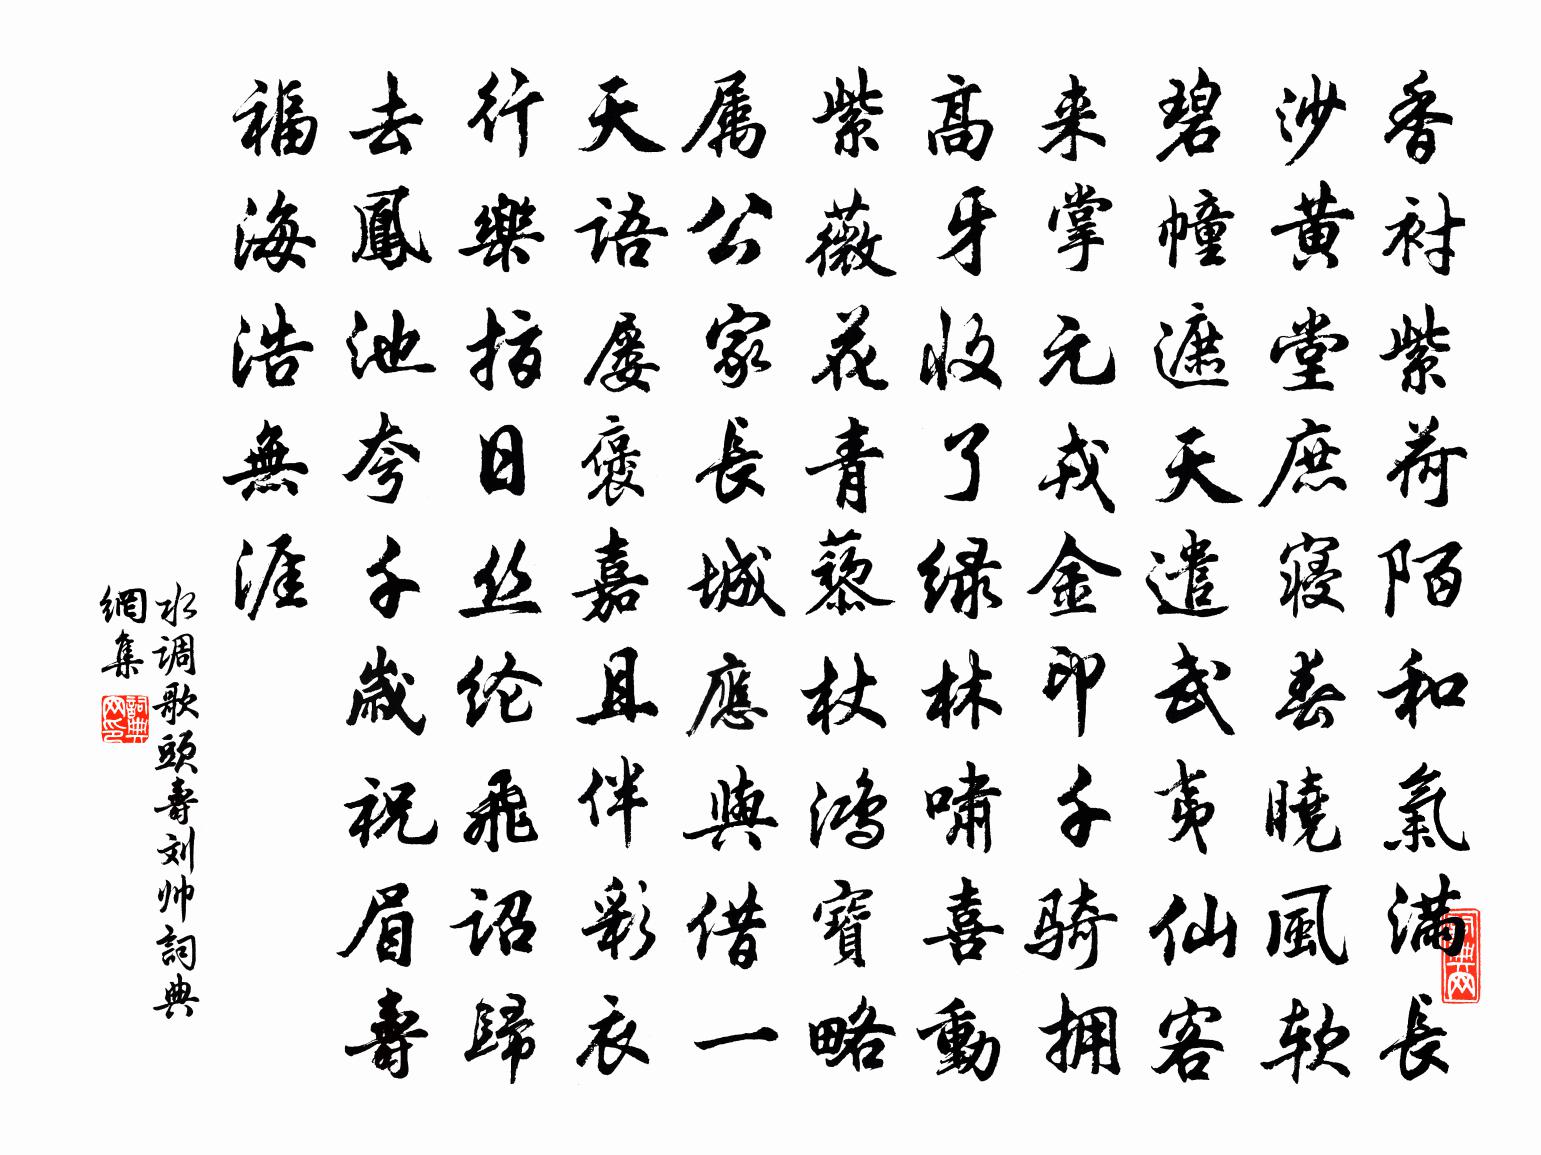 香衬紫荷陌和氣满長
沙黄堂庶寝春曉風软
碧幢遮天遣武夷仙客
来掌元戎金印千骑拥
高牙收了绿林啸喜動
紫薇花青藜杖鸿寶略
属公家長城應與借一
天语屡褒嘉且伴彩衣
行樂指日丝纶飛诏歸
去鳳池夸千歲祝眉壽
福海浩無涯
水调歌頭壽刘帅詞典
網集